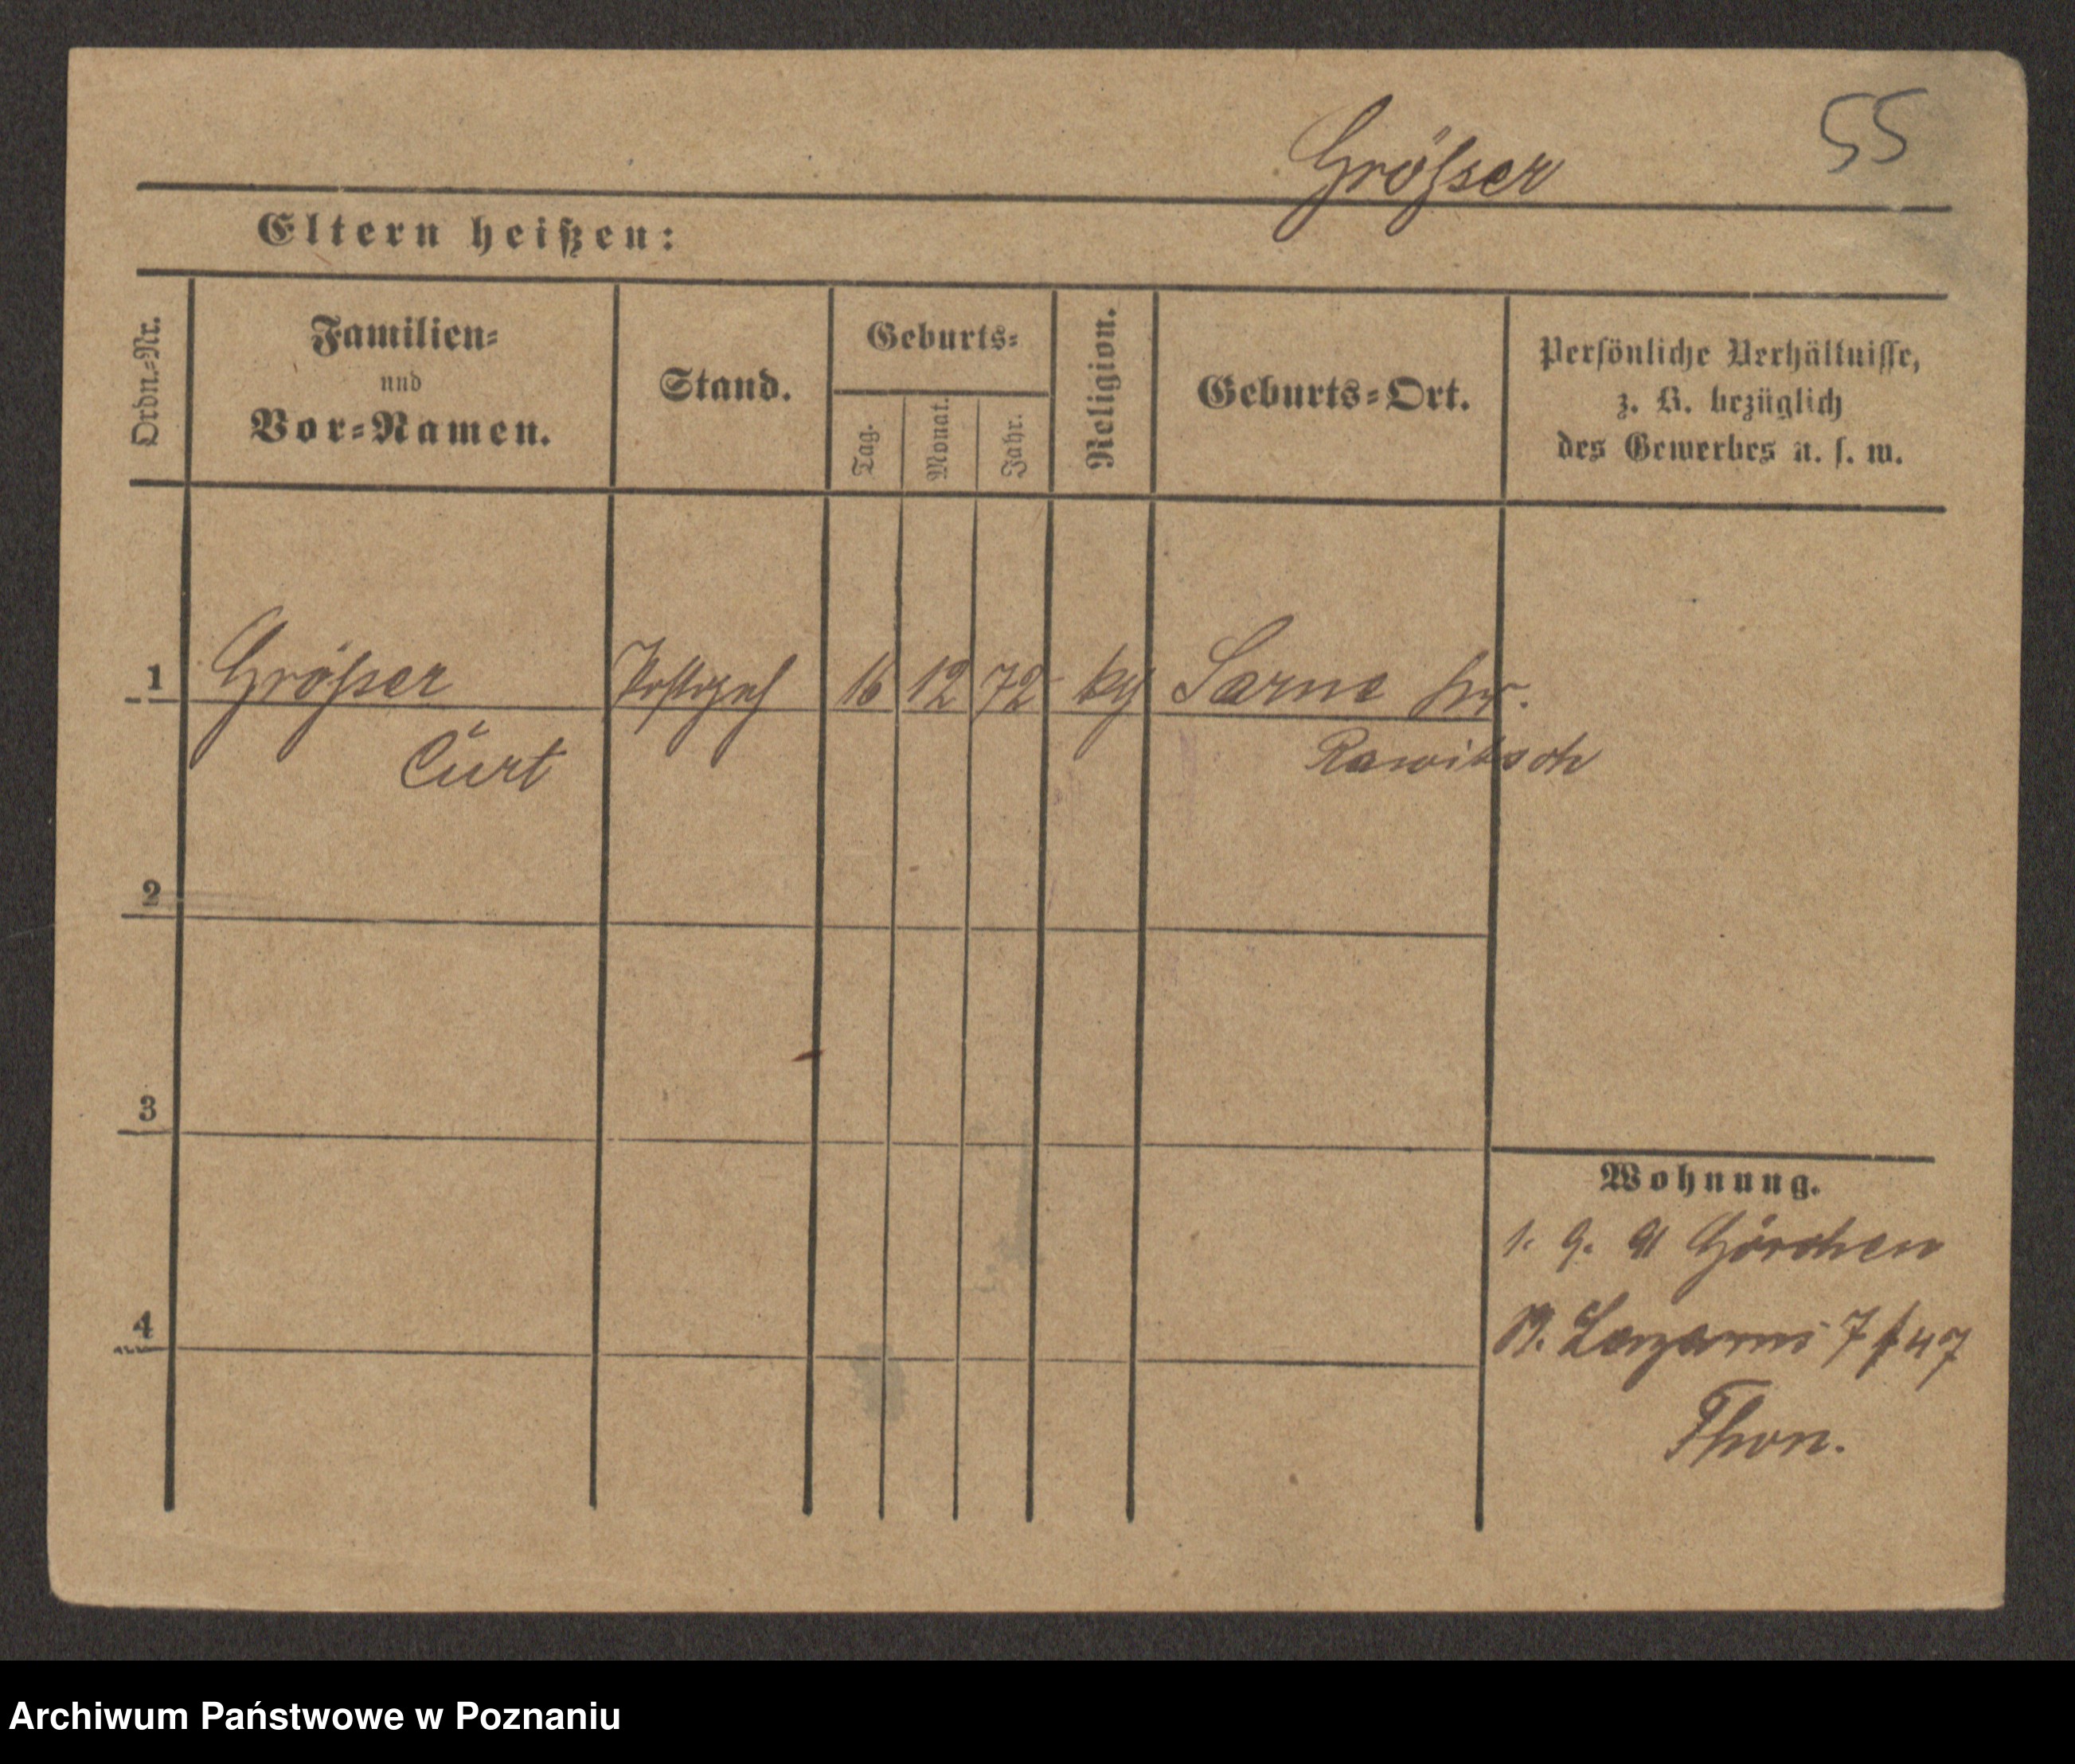 55
Größer
Eltern heißen:
Ordn.-Nr.
Familien-
und
Vor-Namen.
Stand.
Geburts-
Tag.
Monat.
Jahr.
Religion.
Geburts-Ort.
Persönliche Verhältnisse,
z. B. bezüglich
des Gewerbes u. s. w.
1 Größer 16 12 72 Sarne Kr.
Curt Rawitsch
2
3
4
Wohnung.
1. 9. 91 Görchen
7 47
Thon.
Archiwum Państwowe w Poznaniu